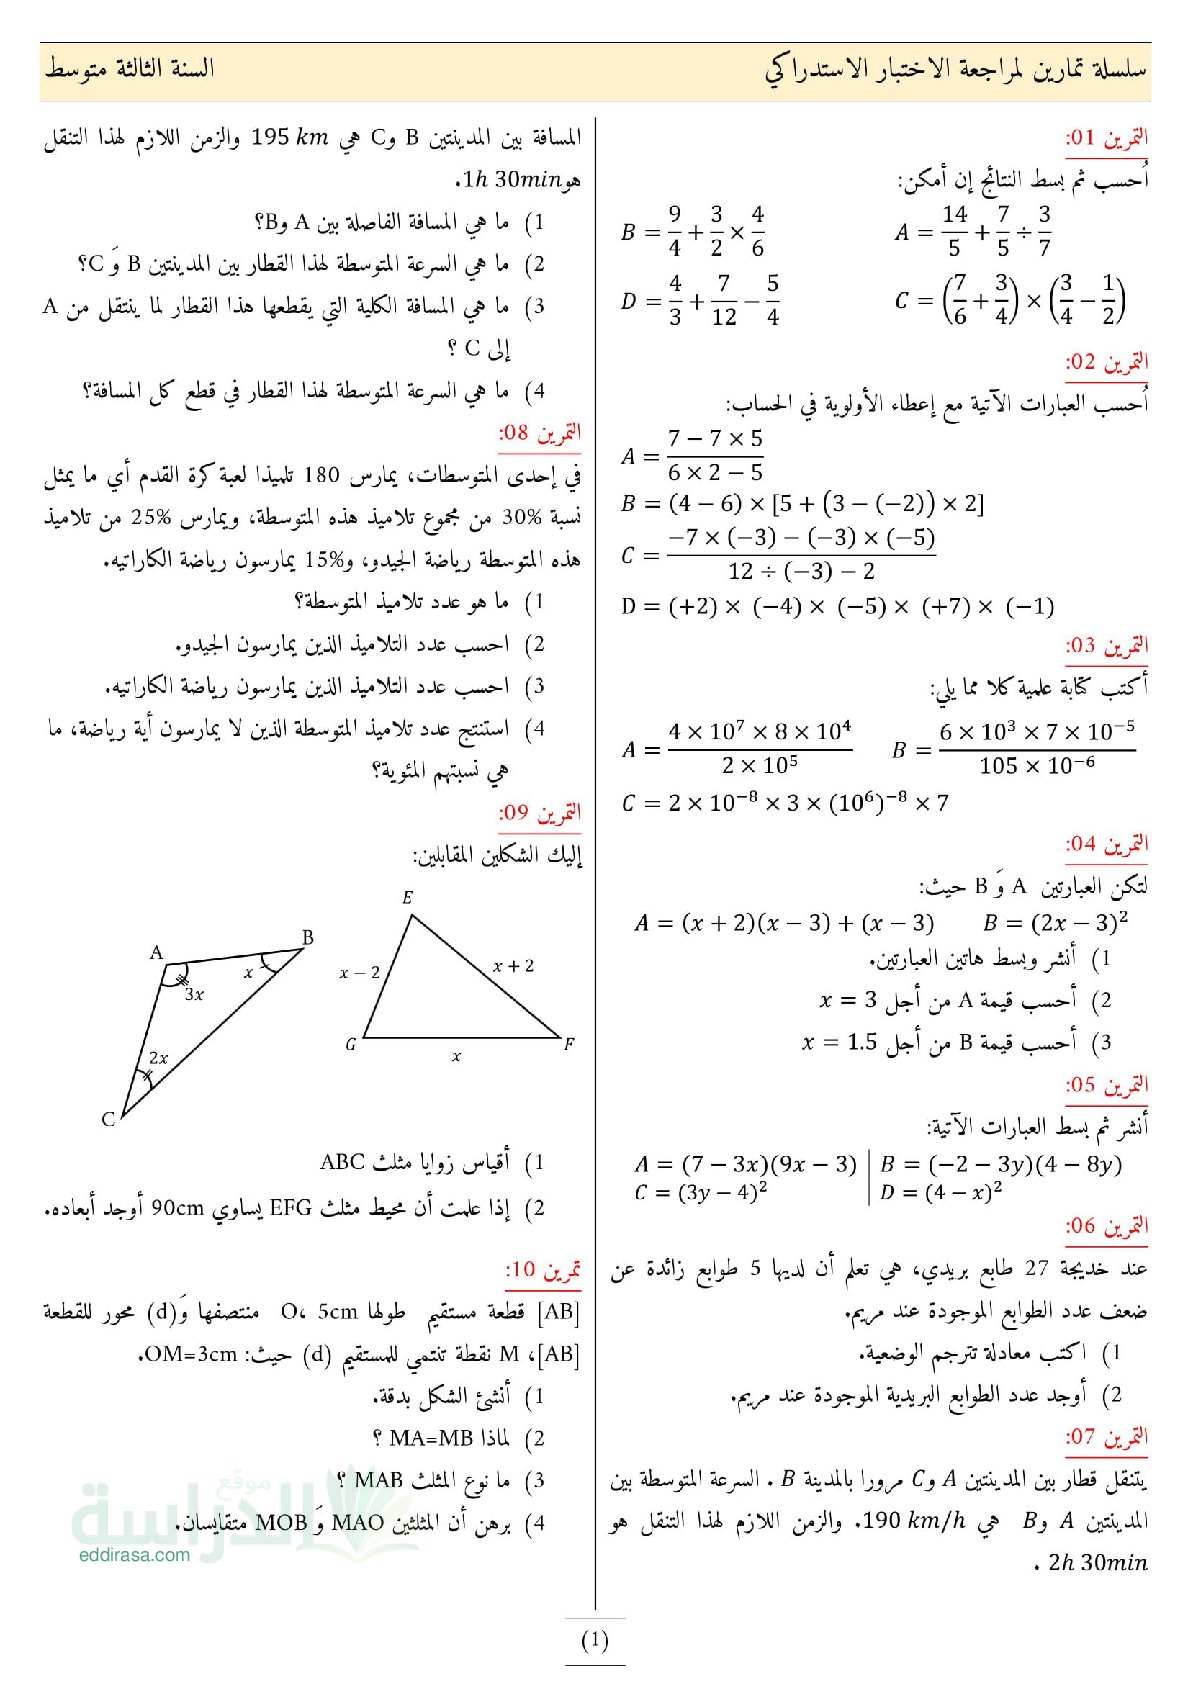 سلسلة تمارين لمراجعة الاختبار الاستدراكي
السنة الثالثة متوسط
التمرين 01:
أحسب ثم بسط النتائج إن أمكن:
A = 14/5 + 7/5 ÷ 3/7
B = 9/4 + 3/2 × 4/6
C = (7/6 + 3/4) × (3/4 − 1/2)
D = 4/3 + 7/12 − 5/4
التمرين 02:
أحسب العبارات الآتية مع إعطاء الأولوية في الحساب:
A = (7 − 7 × 5)/(6 × 2 − 5)
B = (4 − 6) × [5 + (3 − (−2)) × 2]
C = (−7 × (−3) − (−3) × (−5))/(12 ÷ (−3) − 2)
D = (+2) × (−4) × (−5) × (+7) × (−1)
التمرين 03:
أكتب كتابة علمية كلا مما يلي:
A = (4 × 10⁷ × 8 × 10⁴)/(2 × 10⁵)
B = (6 × 10³ × 7 × 10⁻⁵)/(105 × 10⁻⁶)
C = 2 × 10⁻⁸ × 3 × (10⁶)⁻⁸ × 7
التمرين 04:
لتكن العبارتين A وَ B حيث:
A = (x + 2)(x − 3) + (x − 3)
B = (2x − 3)²
1) أنشر وبسط هاتين العبارتين.
2) أحسب قيمة A من أجل x = 3
3) أحسب قيمة B من أجل x = 1.5
التمرين 05:
أنشر ثم بسط العبارات الآتية:
A = (7 − 3x)(9x − 3) | B = (−2 − 3y)(4 − 8y)
C = (3y − 4)² | D = (4 − x)²
التمرين 06:
عند خديجة 27 طابع بريدي، هي تعلم أن لديها 5 طوابع زائدة عن
ضعف عدد الطوابع الموجودة عند مريم.
1) اكتب معادلة تترجم الوضعية.
2) أوجد عدد الطوابع البريدية الموجودة عند مريم.
التمرين 07:
يتنقل قطار بين المدينتين A وC مرورا بالمدينة B . السرعة المتوسطة بين
المدينتين A وB هي 190 km/h. والزمن اللازم لهذا التنقل هو
2h 30min .
المسافة بين المدينتين B وC هي 195 km والزمن اللازم لهذا التنقل
هو1h 30min.
1) ما هي المسافة الفاصلة بين A وB؟
2) ما هي السرعة المتوسطة لهذا القطار بين المدينتين B وَ C؟
3) ما هي المسافة الكلية التي يقطعها هذا القطار لما ينتقل من A
إلى C ؟
4) ما هي السرعة المتوسطة لهذا القطار في قطع كل المسافة؟
التمرين 08:
في إحدى المتوسطات، يمارس 180 تلميذا لعبة كرة القدم أي ما يمثل
نسبة 30% من مجموع تلاميذ هذه المتوسطة، ويمارس 25% من تلاميذ
هذه المتوسطة رياضة الجيدو، و15% يمارسون رياضة الكاراتيه.
1) ما هو عدد تلاميذ المتوسطة؟
2) احسب عدد التلاميذ الذين يمارسون الجيدو.
3) احسب عدد التلاميذ الذين يمارسون رياضة الكاراتيه.
4) استنتج عدد تلاميذ المتوسطة الذين لا يمارسون أية رياضة، ما
هي نسبتهم المئوية؟
التمرين 09:
إليك الشكلين المقابلين:
E
x − 2
x + 2
G
F
x
A
B
x
3x
2x
C
1) أقياس زوايا مثلث ABC
2) إذا علمت أن محيط مثلث EFG يساوي 90cm أوجد أبعاده.
تمرين 10:
[AB] قطعة مستقيم طولها 5cm ،O منتصفها وَ(d) محور للقطعة
[AB]، M نقطة تنتمي للمستقيم (d) حيث: OM=3cm.
1) أنشئ الشكل بدقة.
2) لماذا MA=MB ؟
3) ما نوع المثلث MAB ؟
4) برهن أن المثلثين MAO وَ MOB متقايسان.
موقع
الدراسة
eddirasa.com
(1)